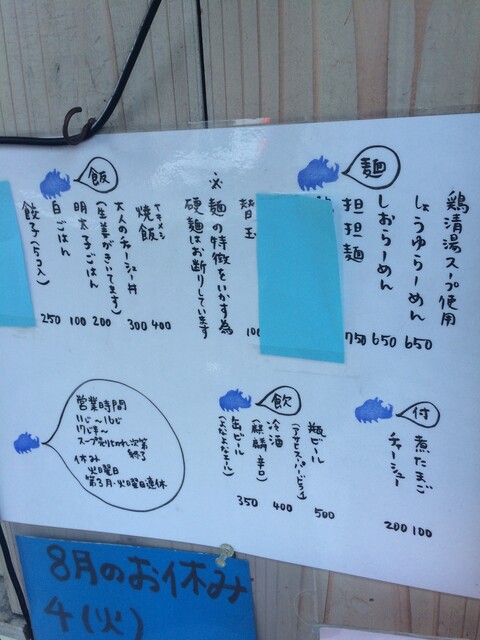 麺
鶏清湯スープ使用
しょうゆらーめん 650
しおらーめん 650
担担麺 750
替玉 100
※麺の特徴をいかす為
硬麺はお断りしています
飯
ヤキメシ
焼飯 400
大人のチャーシュー丼 300
(生姜がきいてます)
明太子ごはん 200
白ごはん 100
餃子(5コ入) 250
付
煮たまご 100
チャーシュー 200
飲
瓶ビール 500
(アサヒスーパードライ)
冷酒 400
(麒麟辛口)
缶ビール 350
(よなよなエール)
営業時間
11じ〜16じ
17じ半〜
スープ売り切れ次第
終了
休み
火曜日
第3月・火曜日連休
8月のお休み
4(火)